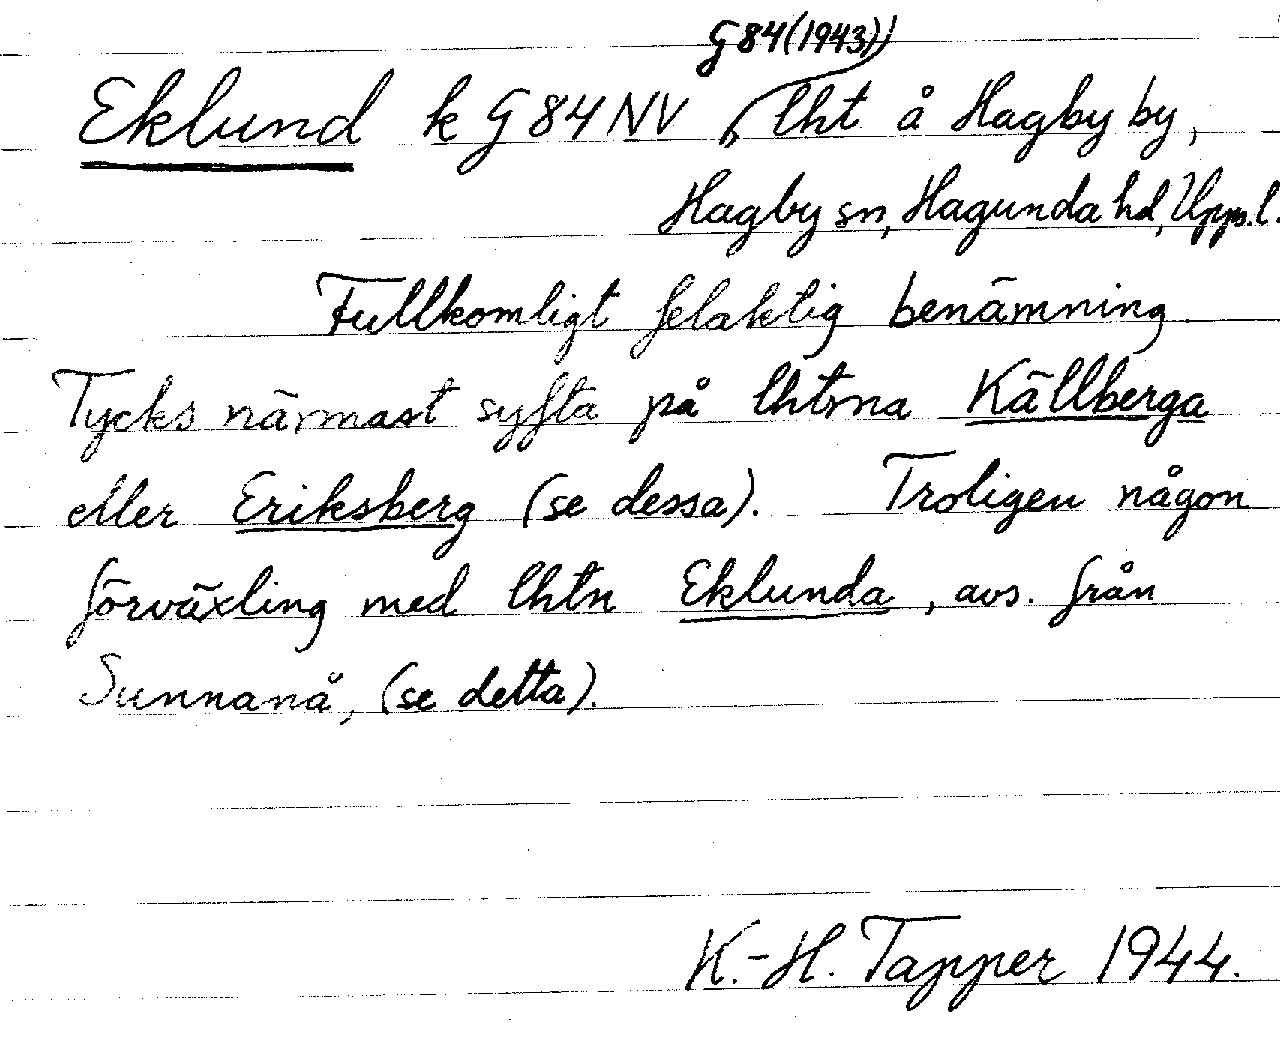 G 84 (1943))
Eklund k G 84 NV, lht å Hagby by,
Hagby sn, Hagunda hd, Upps. l.
Fullkomligt felaktig benämning
Tycks närmast syfta på lhtrna Källberga
eller Eriksberg (se dessa). Troligen någon
förväxling med lhtn Eklunda, avs. från
Sunnanå, (se detta).
K.-H. Tapper 1944.